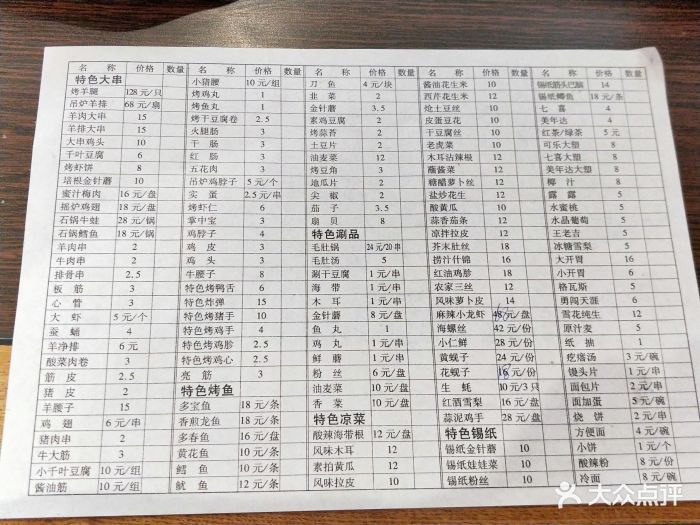 名 称 价格 数量
特色大串
烤羊腿 128元/只
吊炉羊排 68元/扇
羊肉大串 15
羊排大串 15
大串鸡头 10
千叶豆腐 6
烤虾饼 8
培根金针蘑 10
蜜汁梅肉 16元/盘
摇炉鸡翅 18元/盘
石锅牛蛙 28元/锅
石锅鳕鱼 18元/锅
羊肉串 2
牛肉串 2
排骨串 2.5
板筋 3
心管 3
大虾 5元/个
蚕蛹 4
羊净排 6元
酸菜肉卷 3
筋皮 2.5
猪皮 2
羊腰子 15
鸡翅 6元/串
猪肉串 2
牛大筋 3
小千叶豆腐 10元/组
酱油筋 10元/组
名 称 价格 数量
小猪腰 10元/组
烤鸡丸 1
烤鱼丸 1
烤干豆腐卷 2.5
火腿肠 3
干肠 3
红肠 3
五花肉 3
吊炉鸡脖子 5元/个
实蛋 2.5元/串
烤虾仁 6
掌中宝 3
鸡脖子 4
鸡皮 3
鸡头 3
牛腰子 8
特色烤鸭舌 6
特色炸弹 15
特色烤猪手 10
特色烤鸡手 4
特色烤鸡胗 2.5
特色烤鸡心 2.5
亮筋 3
特色烤鱼
多宝鱼 18元/条
香煎龙鱼 18元/条
多春鱼 16元/盘
黄花鱼 10元/条
鳕鱼 10元/条
鱿鱼 12元/条
名 称 价格 数量
刀鱼 4元/块
韭菜 2
金针蘑 3.5
素鸡豆腐 2
烤蒜苔 2
土豆片 2
油麦菜 2
烤豆角 3
地瓜片 2
尖椒 2
茄子 3.5
扇贝 8
特色涮品
毛肚锅 24元/20串
毛肚汤 5
涮干豆腐 1元/串
海带 1元/串
木耳 1元/串
金针蘑 8元/盘
鱼丸 1元/串
鸡丸 1元/串
鲜蘑 1元/串
粉丝 6元/盘
油麦菜 10元/盘
香菜 10元/盘
特色凉菜
酸辣海带根 12元/盘
风味木耳 12
素拍黄瓜 12
风味拉皮 10
名 称 价格 数量
酱油花生米 10
西芹花生米 12
炝土豆丝 10
皮蛋豆花 10
干豆腐丝 10
老虎菜 10
木耳沾辣根 12
蘸酱菜 12
糖醋萝卜丝 12
盐炒花生 12
酸黄瓜 10
蒜香茄条 12
凉拌拉皮 12
芥末肚丝 18
捞汁什锦 16
红油鸡胗 18
农家三丝 12
风味萝卜皮 14
麻辣小龙虾 48元/盘
海螺丝 42元/份
小仁鲜 28元/份
黄蚬子 24元/份
花蚬子 16元/份
生蚝 10元/3只
红酒雪梨 16元/盘
蒜泥鸡手 28元/盘
特色锡纸
锡纸金针蘑 10
锡纸娃娃菜 10
锡纸粉丝 10
名 称 价格 数量
14
锡纸鲫鱼 18元/条
七喜 4
美年达 4
红茶/绿茶 5元
可乐大塑 8
七喜大塑 8
美年达大塑 8
椰汁 8
露露 5
水蜜桃 5
水晶葡萄 5
王老吉 5
冰糖雪梨 5
大开胃 16
小开胃 6
格瓦斯 5
勇闯天涯 6
雪花纯生 12
原汁麦 5
纸抽 1
疙瘩汤 3元/碗
馒头片 1元/串
面包片 2元/串
面加蛋 5元/碗
烧饼 2元/串
方便面 4元/碗
小饼 1元/个
酸辣粉 8元/份
冷面 8元/碗
大众点评